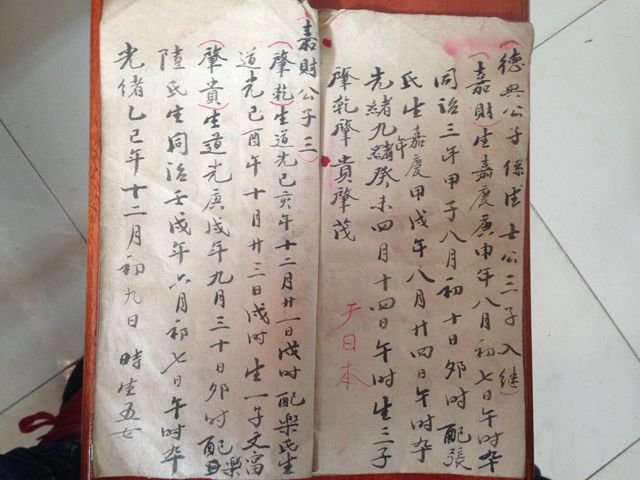 德興公子係德士公三子入継
嘉財生嘉慶庚申年八月初七日午时卒
同治三年甲子八月初十日卯时配張
氏生嘉慶年甲戌年八月廿四日午时卒
光緒九年癸未四月十四日午时生三子
肇乾肇貴肇茂
于日本
嘉財公子三
肇乾生道光己亥年十二月廿一日戌时配梁氏生
道光己酉年十月廿三日戌时生一子文富
肇貴生道光庚戌年九月三十日卯时配梁
陸氏生同治壬戌年六月初七日午时卒
光緒乙巳年十二月初九日 時生五女